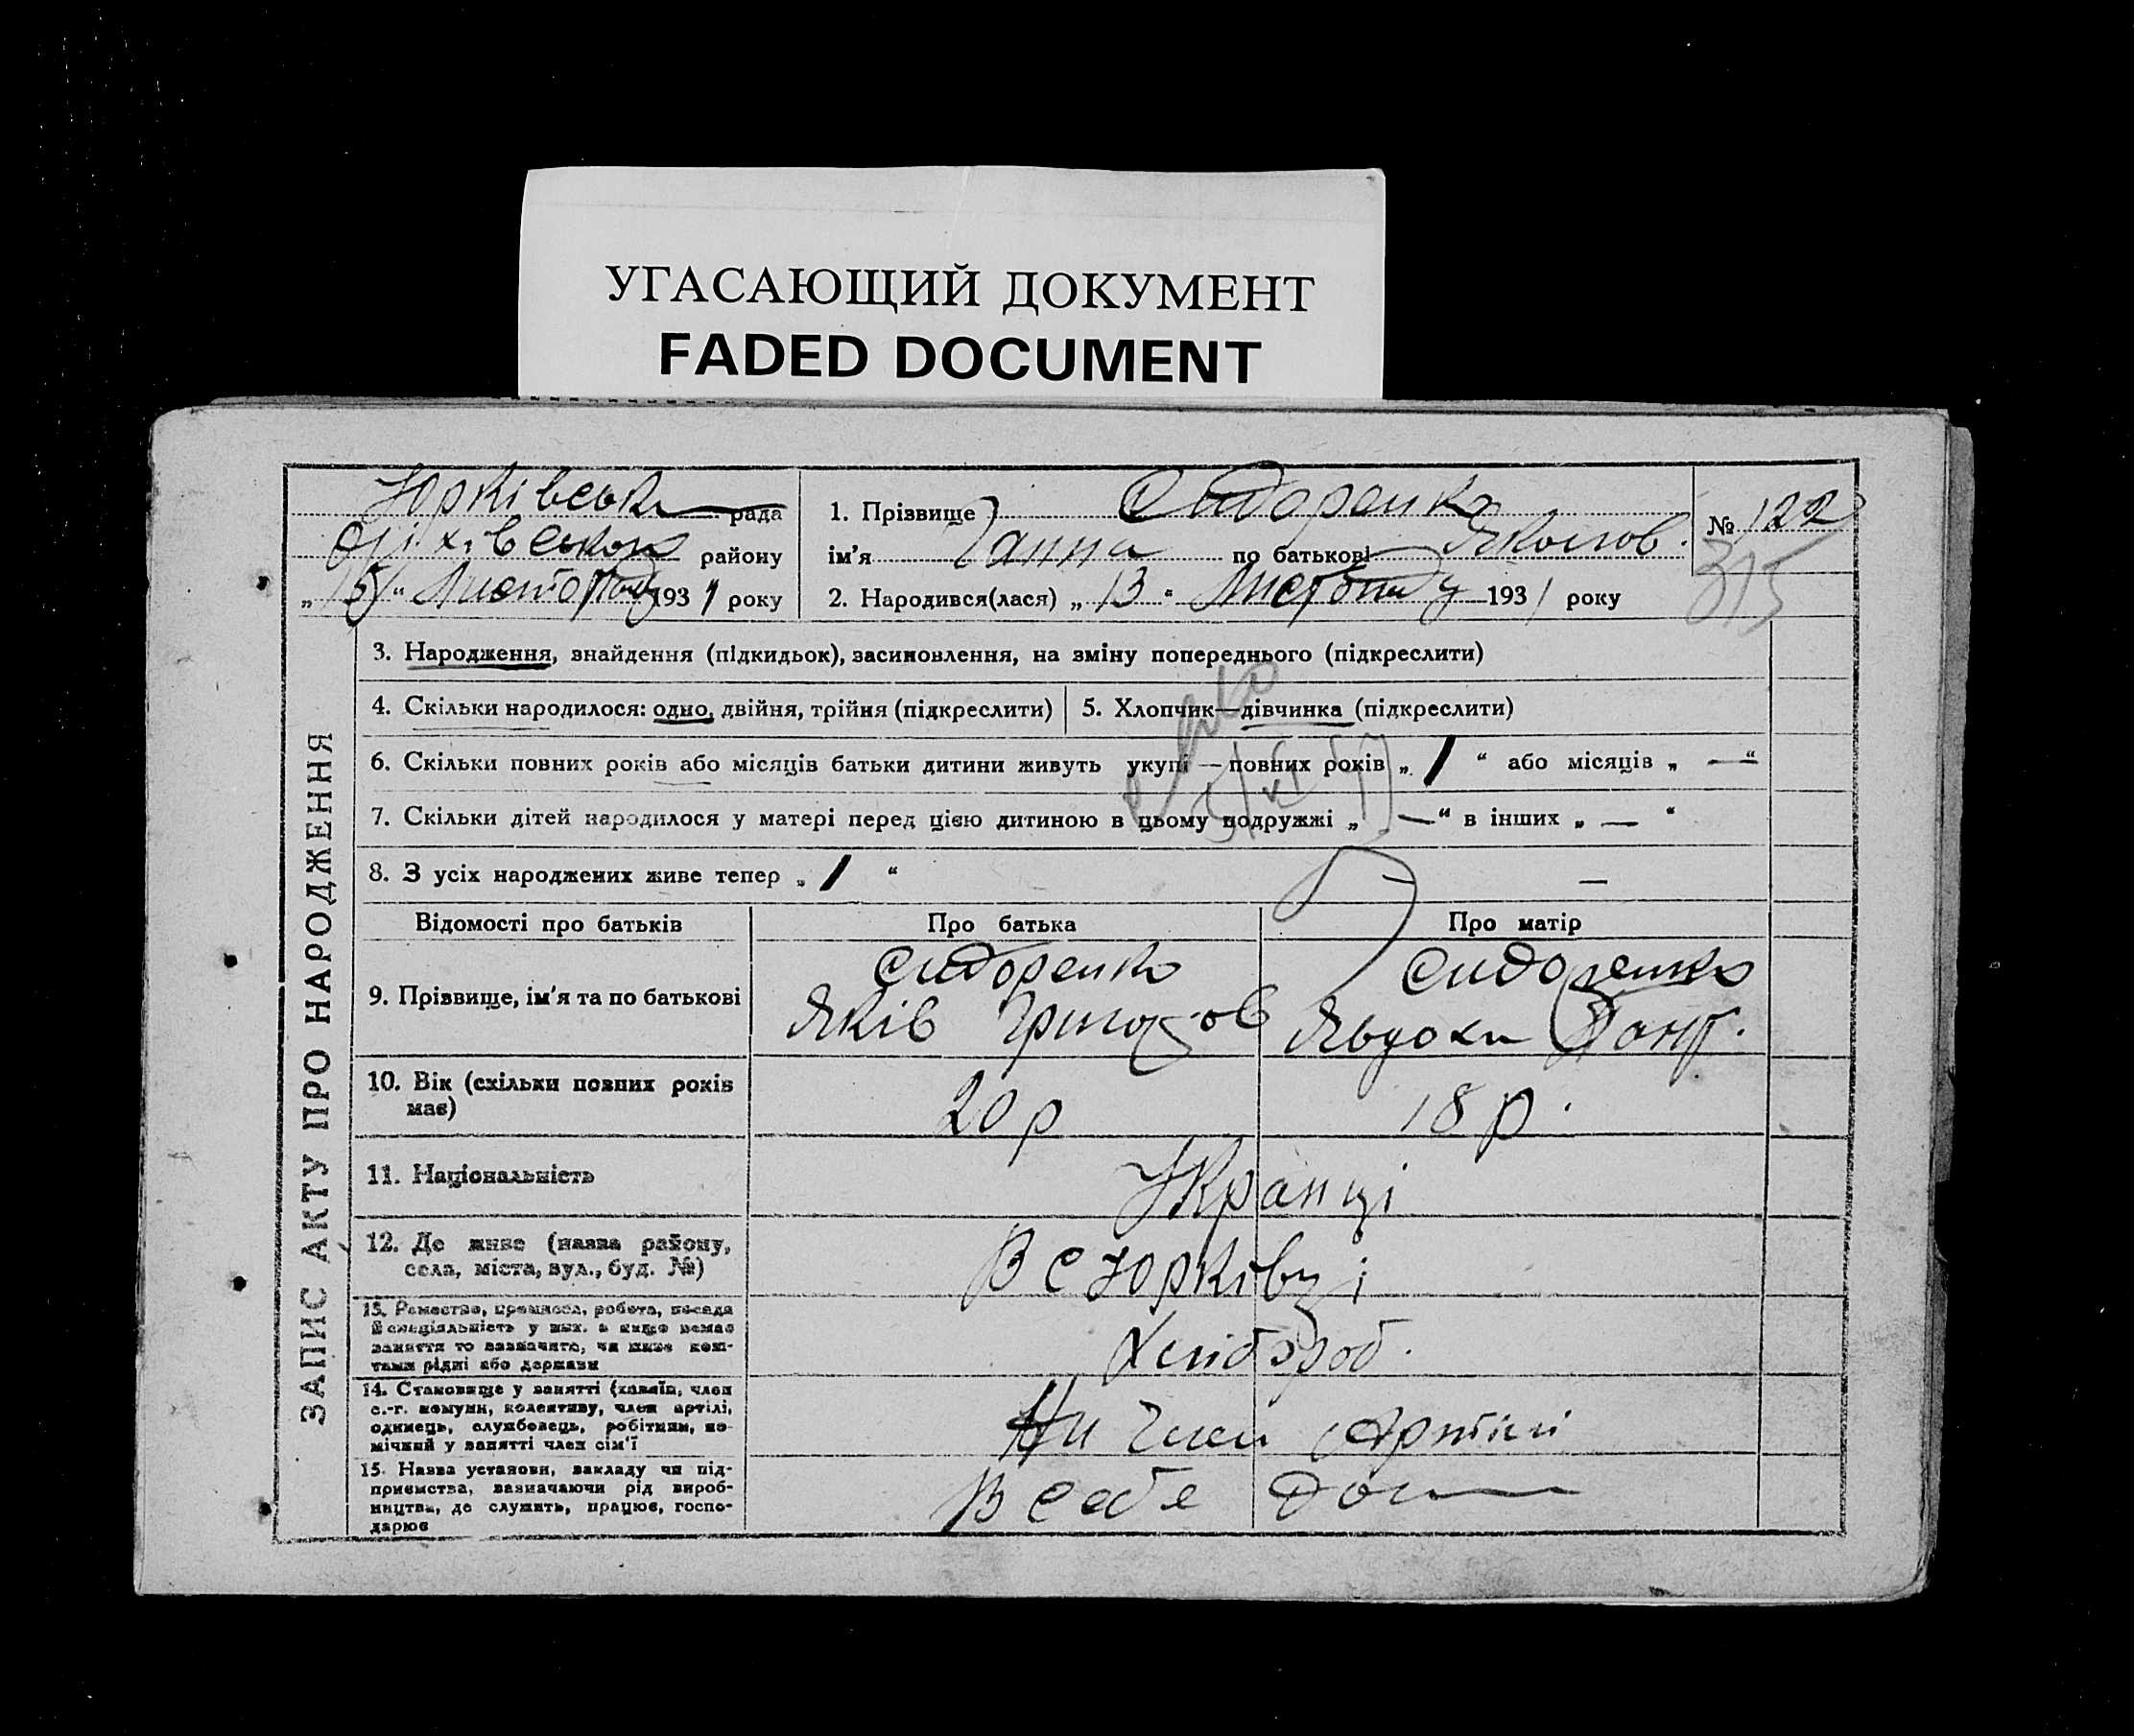 УГАСАЮЩИЙ ДОКУМЕНТ
FADED DOCUMENT
ЗАПИС АКТУ ПРО НАРОДЖЕННЯ
Юрківська рада
району
„15“ Листопаду 1931 року
1. Прізвище Сидоренко
ім'я Ганна по батькові Яковлів.
2. Народився(лася) „13“ Листопаду 1931 року
№ 122
315
3. Народження, знайдення (підкидьок), засиновлення, на зміну попереднього (підкреслити)
4. Скільки народилося: одно, двійня, трійня (підкреслити)
5. Хлопчик—дівчинка (підкреслити)
6. Скільки повних років або місяців батьки дитини живуть укупі — повних років „1“ або місяців „—“
7. Скільки дітей народилося у матері перед цією дитиною в цьому подружжі „—“ в інших „—“
8. З усіх народжених живе тепер „1“ —
Відомості про батьків
Про батька
Про матір
9. Прізвище, ім'я та по батькові
Сидоренко
Яків
Сидоренко
10. Вік (скільки повних років має)
20 р
18 р.
11. Національність
Украпці
12. Де живе (назва району, села, міста, вул., буд. №)
В с Юрківці
13. Ремество, промисел, робота, посада й спеціяльність у них, а якщо немає заняття то зазначити, чи живе коштами рідні або держави
Хлібороб.
14. Становище у занятті (хазяїн, член с.-г. комуни, колективу, член артілі, одинець, службовець, робітник, помічний у занятті член сім'ї
Член Артілі
15. Назва установи, закладу чи підприємства, зазначаючи рід виробництва, де служить, працює, господарює
В себе дома